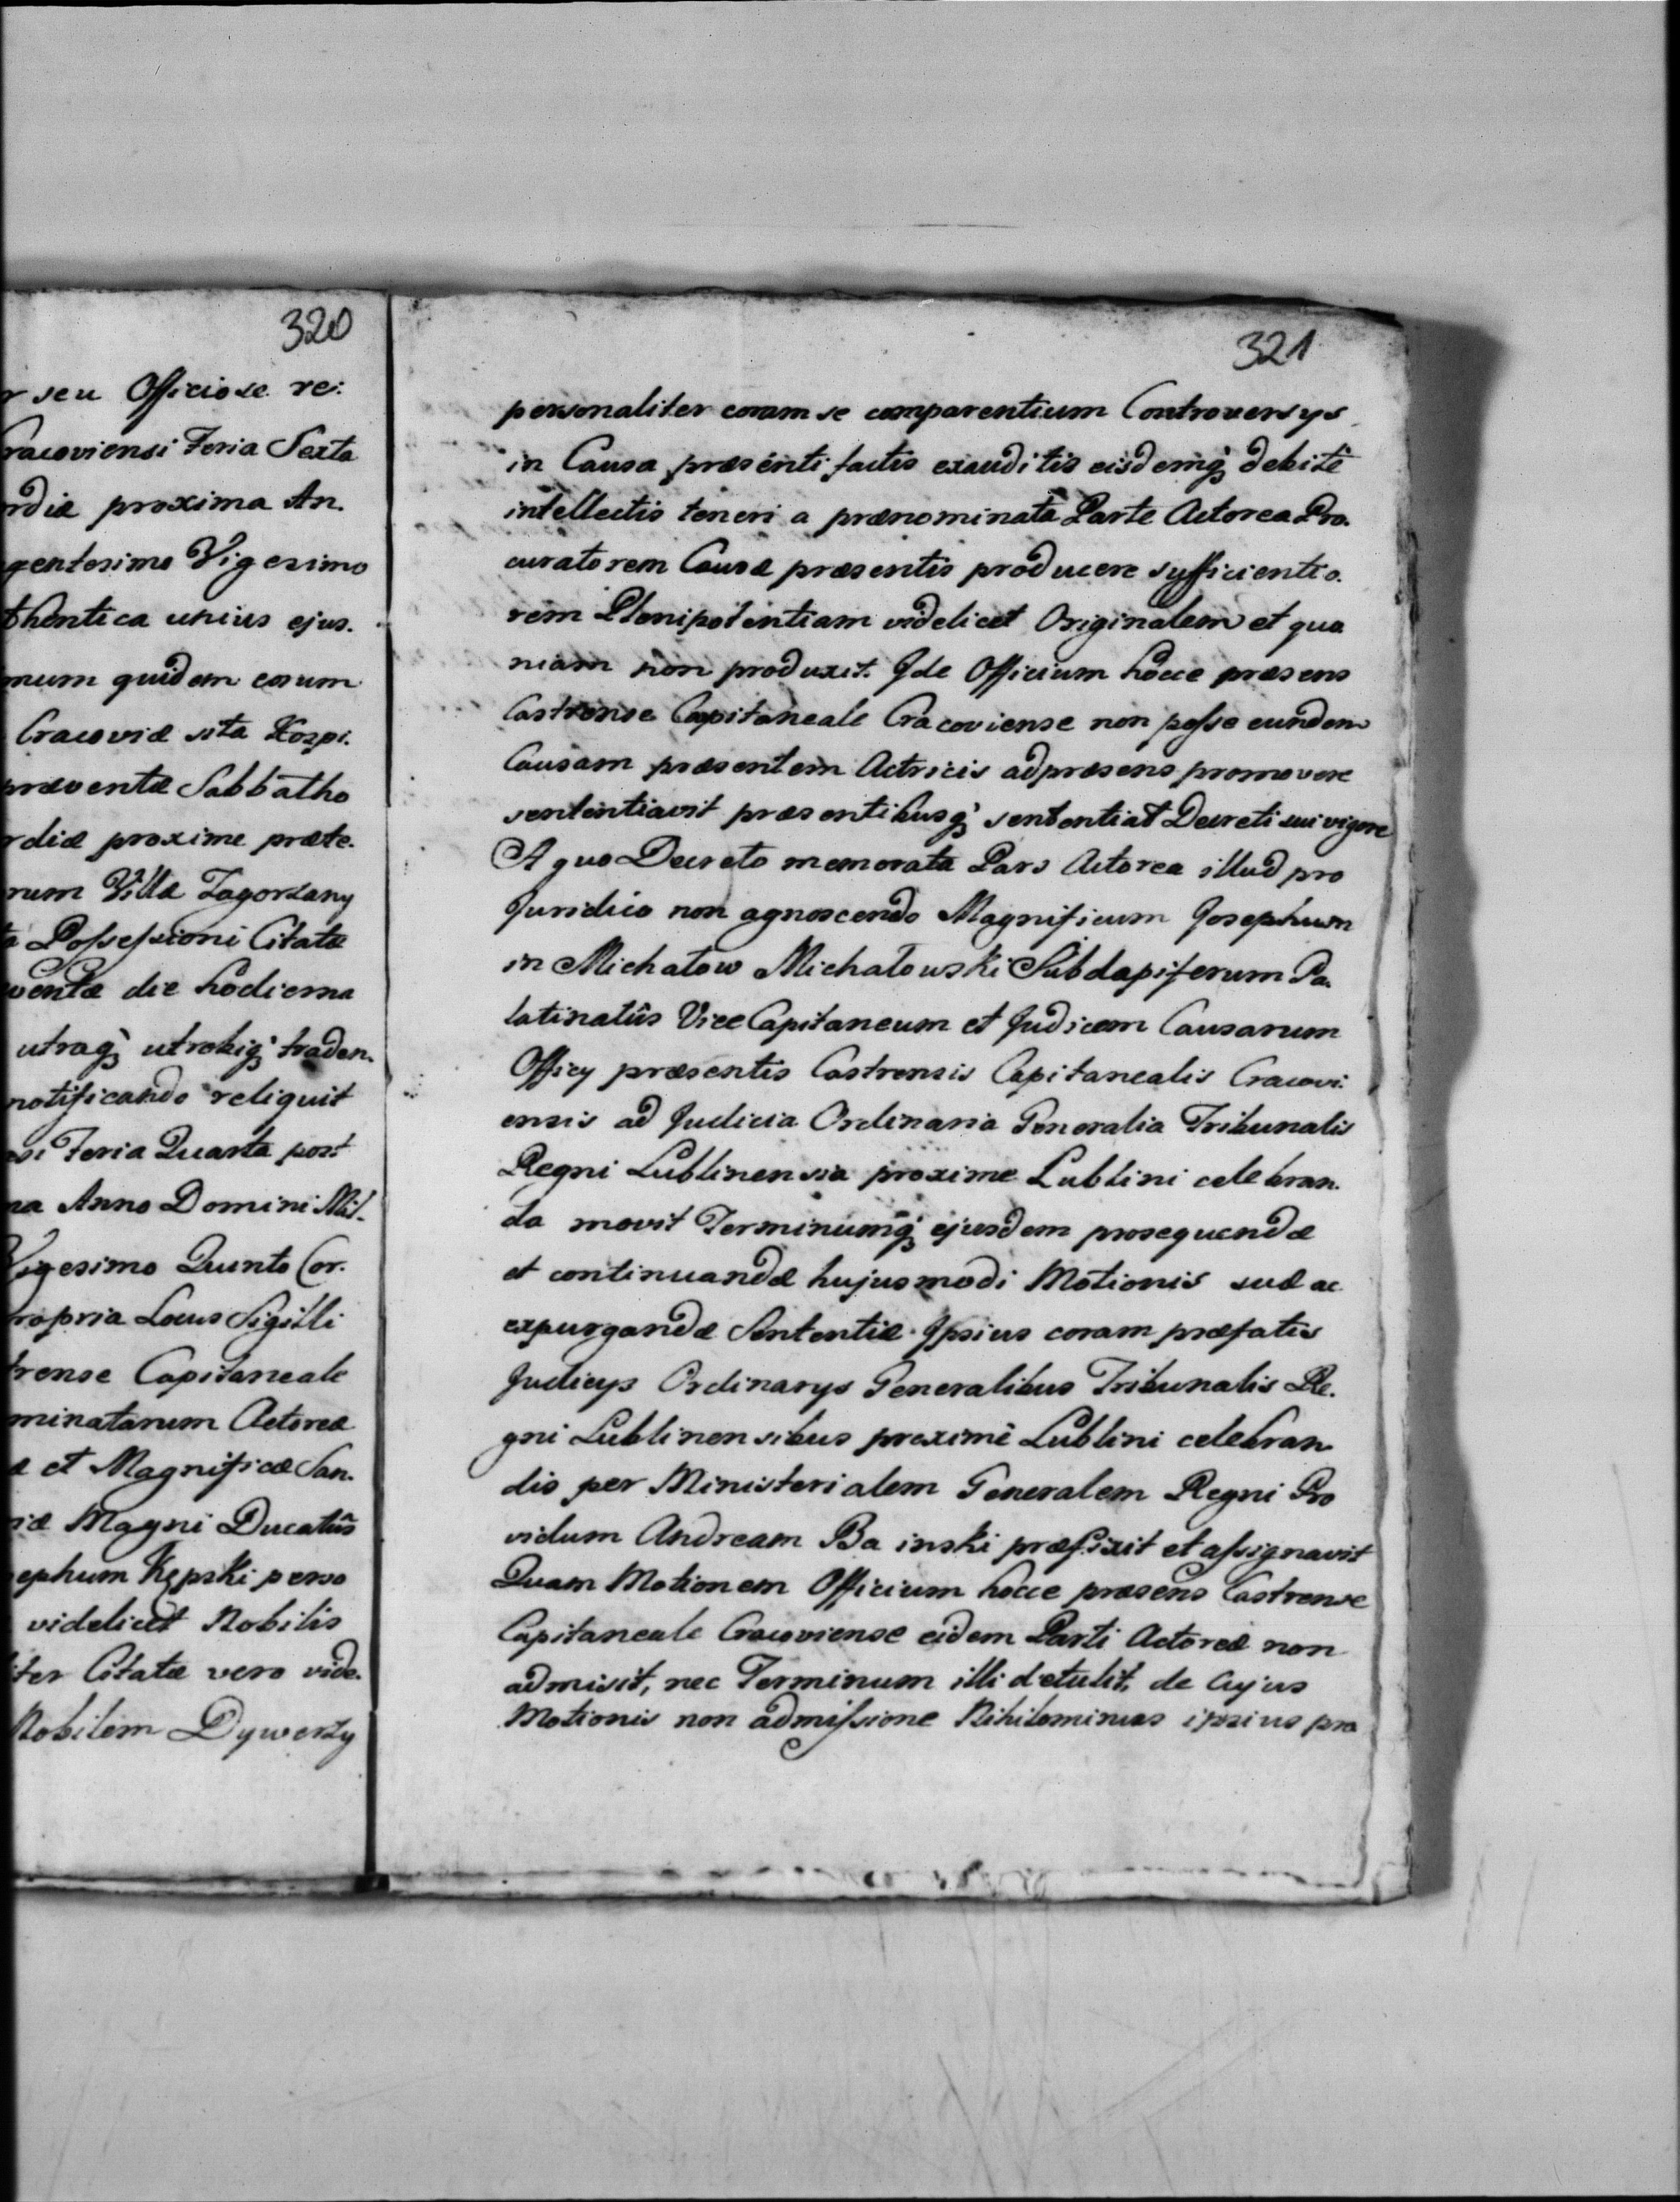 320
r seu Officiose re:
racoviensi Feria Sexta
rdiæ proxima An.
gentesimo Vigesimo
thentica unius ejus.
mum quidem eorum
Cracoviæ sita Hospi.
præventæ Sabbatho
rdiæ proxime præte.
rum Villæ Zagorzany
Possessioni Citatæ
ventæ die hodierna
utraq; utrobiq; traden.
notificando reliquit
Feria Quarta post
na Anno Domini Mil.
Vigesimo Quinto Cor.
ropria Locus Sigilli
trense Capitaneale
minatarum Actoreæ
æ et Magnificæ San.
iæ Magni Ducatûs
ephum Kępski perso
videlicet Nobilis
iter Citatæ vero vide.
Nobilem Dywerty
321
personaliter coram se comparentium Controversys
in Causa præsenti factis exauditis eisdemq; debitè
intellectis teneri a prænominata Parte Actorea Pro.
curatorem Causæ præsentis producere sufficientio.
rem Plenipotentiam videlicet Originalem et quo
niam non produxit. Ide Officium hocce præsens
Castrense Capitaneale Cracoviense non posse eundem
Causam præsentem Actricis ad præsens promovere
sententiavit præsentibusq; sententiat Decreti sui vigore
A quo Decreto memorata Pars Actorea illud pro
Juridico non agnoscendo Magnificum Josephum
in Michałow Michałowski Subdapiferum Pa.
latinatûs Vice Capitaneum et Judicem Causarum
Officy præsentis Castrensis Capitanealis Cracovi.
ensis ad Judicia Ordinaria Generalia Tribunalis
Regni Lublinensia proxime Lublini celebran.
da movit Terminumq; ejusdem prosequendæ
et continuandæ hujusmodi Motionis suæ ac
expurgandæ Sententiæ Ipsius coram præfatis
Judicys Ordinarys Generalibus Tribunalis Re.
gni Lublinensibus proximè Lublini celebran.
dis per Ministerialem Generalem Regni Pro
vidum Andream Ba inski præfixit et assignavit
Quam Motionem Officium hocce præsens Castrense
Capitaneale Cracoviense eidem Parti Actoreæ non
admisit, nec Terminum illi detulit, de Cujus
Motionis non admissione Nihilominus ipsius pro